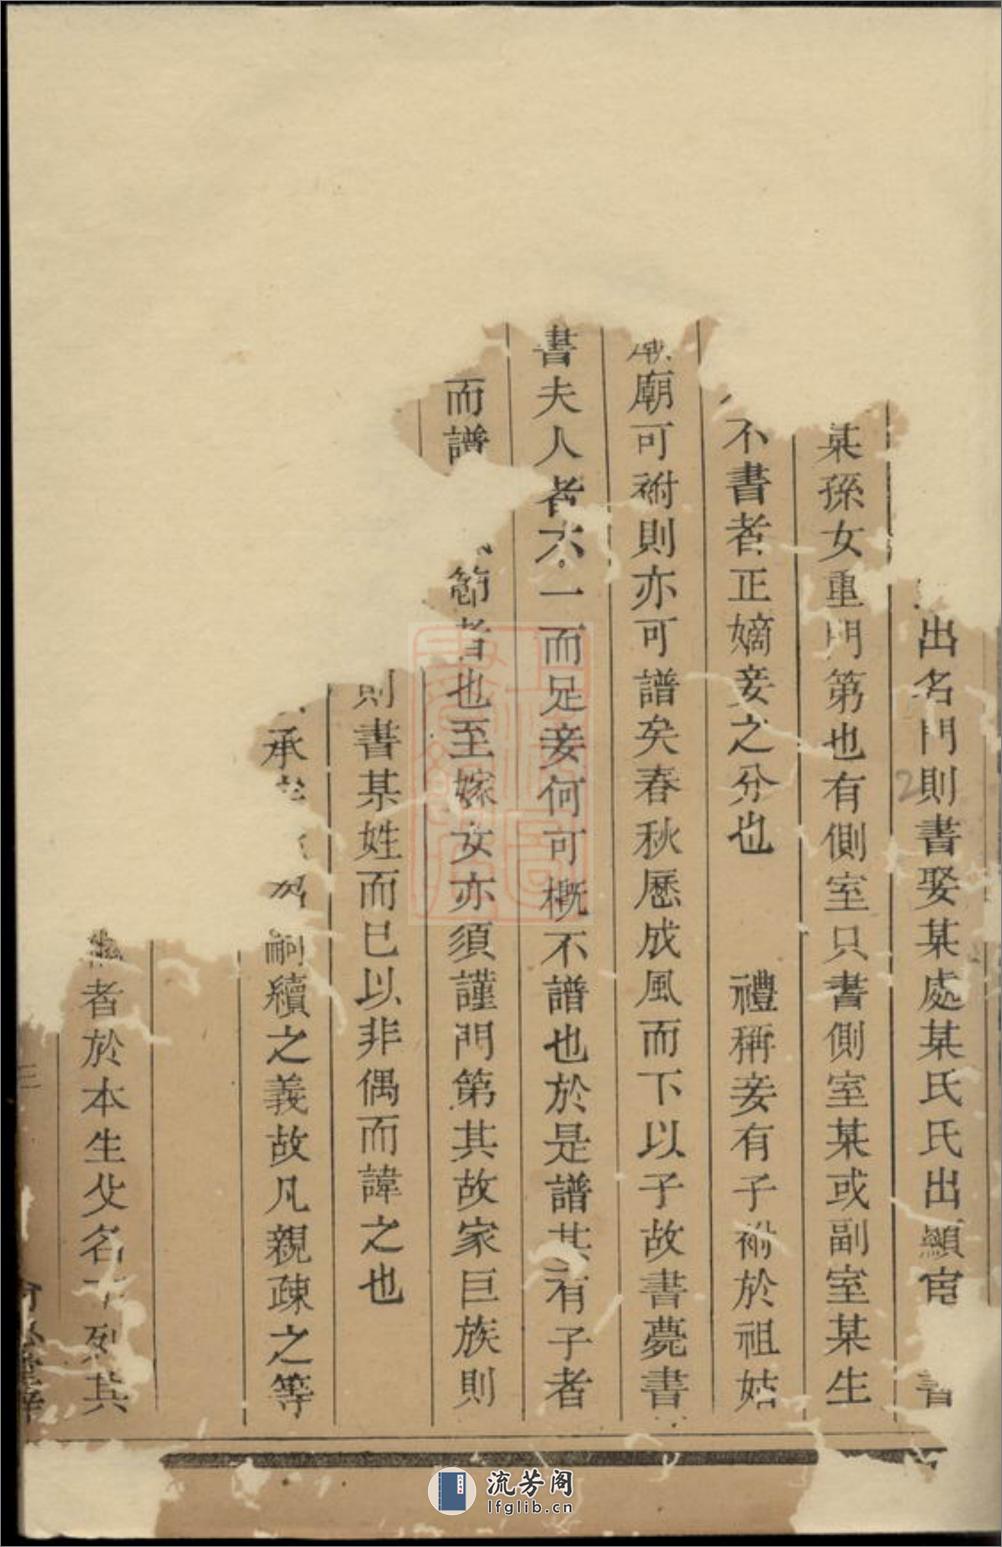 出名門則書娶某處某氏氏出顯宦書
某孫女重門第也有側室只書側室某或副室某生
不書者正嫡妾之分也 禮稱妾有子祔於祖姑
廟可祔則亦可譜矣春秋歷成風而下以子故書薨書
書夫人者不一而足妾何可概不譜也於是譜其有子者
而譜節者也至嫁女亦須謹門第其故家巨族則
則書某姓而已以非偶而諱之也
承嗣續之義故凡親疎之等
者於本生父名下列其
三
流芳阁
lfglib.cn